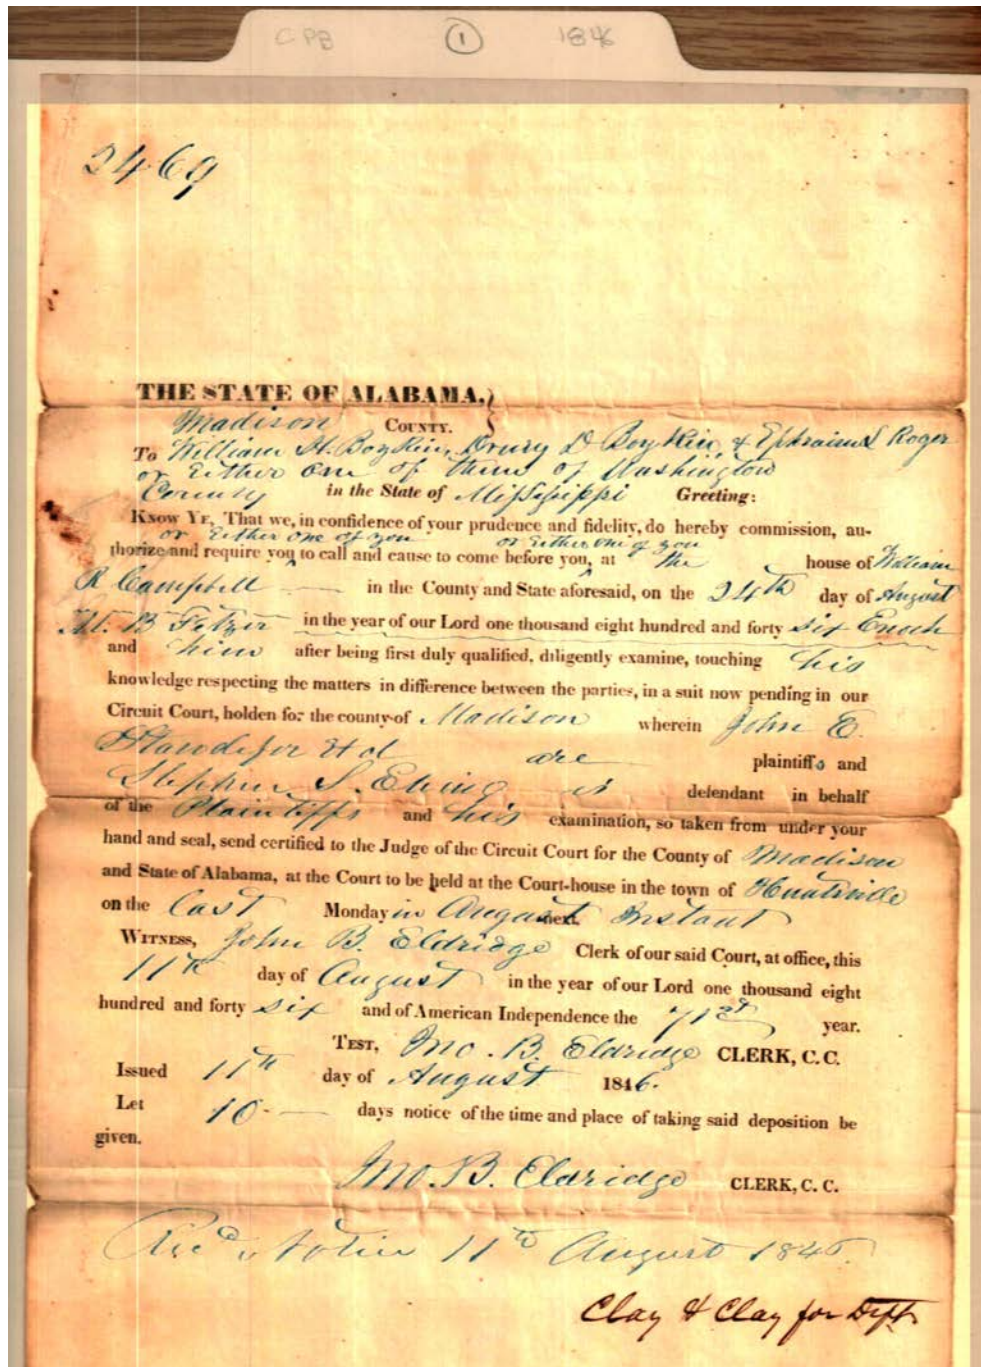 CPB 1 1846
2469
THE STATE OF ALABAMA,
Madison COUNTY.
To William H. Boykin, Drury D Boykin, & Ephraim L Roger
or Either one of them of Washington
County in the State of Mississippi Greeting:
KNOW YE, That we, in confidence of your prudence and fidelity, do hereby commission, au-
or Either one of you or Either one of you
thorize and require you to call and cause to come before you, at the house of William
R Campbell in the County and State aforesaid, on the 24th day of August
B Fetzer in the year of our Lord one thousand eight hundred and forty six Enoch
and him after being first duly qualified, diligently examine, touching his
knowledge respecting the matters in difference between the parties, in a suit now pending in our
Circuit Court, holden for the county of Madison wherein John E.
Standefer et al are plaintiffs and
Stephen S. Ewing is defendant in behalf
of the Plaintiffs and his examination, so taken from under your
hand and seal, send certified to the Judge of the Circuit Court for the County of Madison
and State of Alabama, at the Court to be held at the Court-house in the town of Huntsville
on the Last Monday in August next. Instant
WITNESS, John B. Eldridge Clerk of our said Court, at office, this
11th day of August in the year of our Lord one thousand eight
hundred and forty six and of American Independence the 71st year.
TEST, Jno. B. Eldridge CLERK, C. C.
Issued 11th day of August 1846.
Let 10 days notice of the time and place of taking said deposition be
given.
Jno. B. Eldridge CLERK, C. C.
Recd Notice 11th August 1846
Clay & Clay for Deft